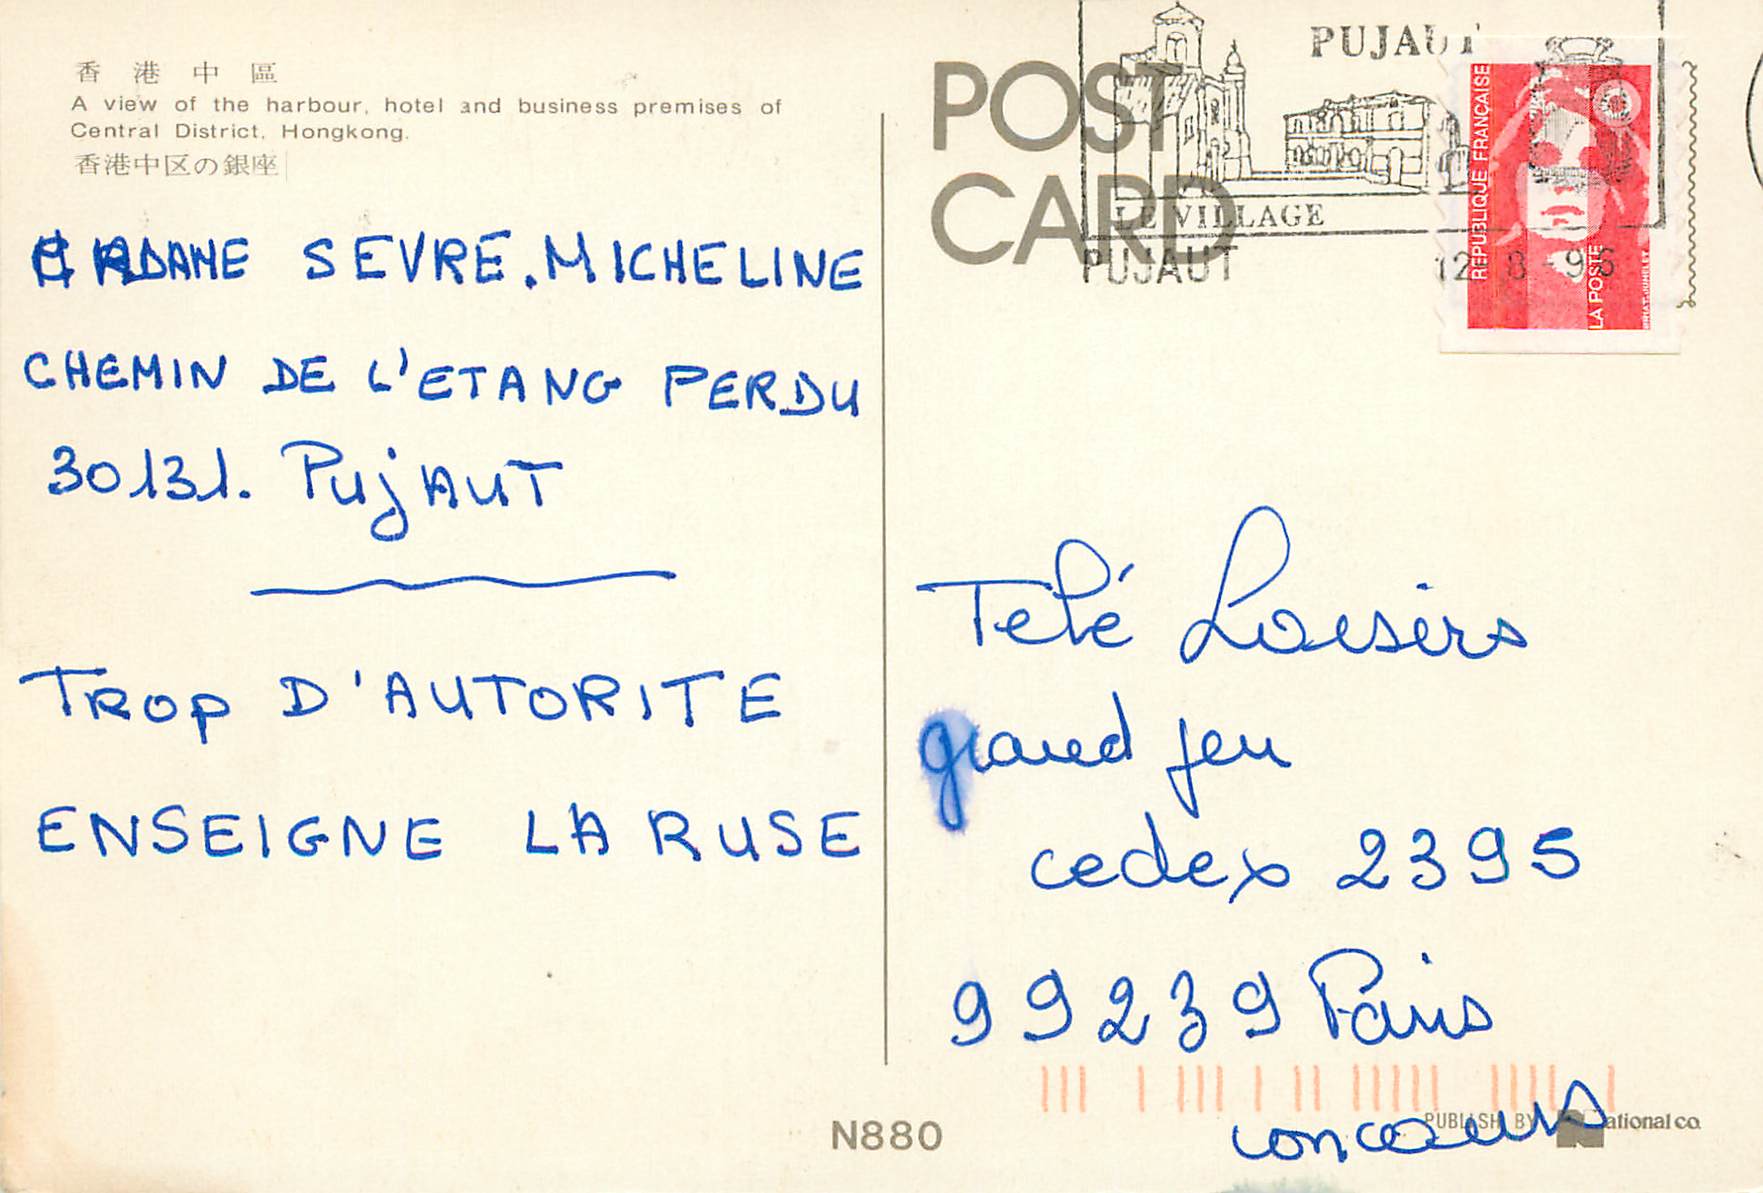 香港中區
A view of the harbour, hotel and business premises of
Central District, Hongkong.
香港中区の銀座
MADAME SEVRE. MICHELINE
CHEMIN DE L'ETANG PERDU
30131. PUjAUT
TROP D'AUTORITE
ENSEIGNE LA RUSE
POST
CARD
PUJAUT
LE VILLAGE
PUJAUT
12 8 - 96
REPUBLIQUE FRANÇAISE
LA POSTE
Telé Loisirs
grand jeu
cedex 2395
99239 Paris
concours
N880
PUBLISH BY National co.